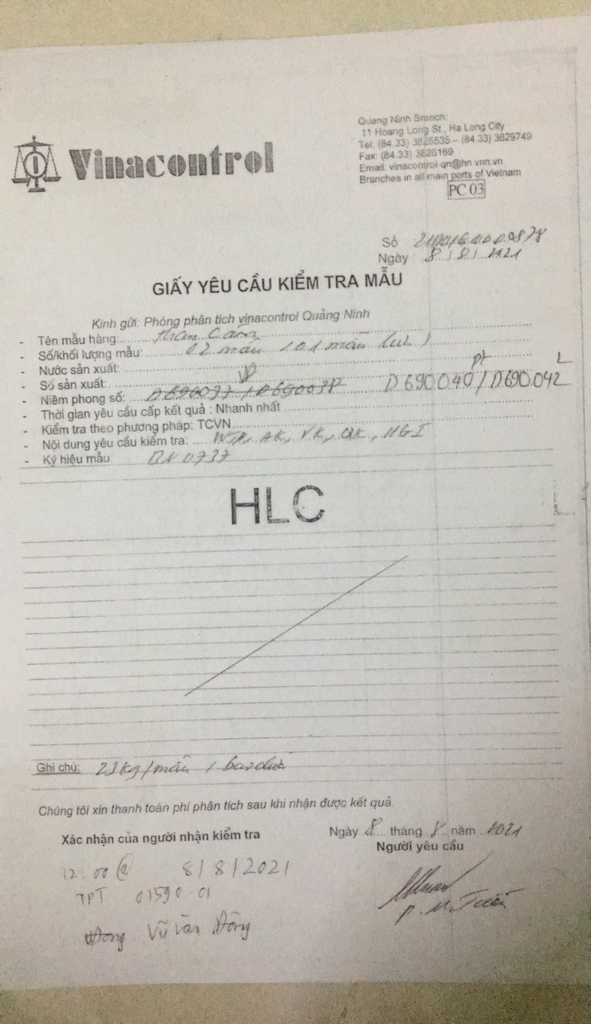 Vinacontrol
Quang Ninh Branch:
11 Hoang Long St., Ha Long City
Tel: (84.33) 3825535 – (84.33) 3829749
Fax: (84.33) 3626169
Email. vinacontrol-qn@hn.vnn.vn
Branches in all main ports of Vietnam
PC 03
Số
Ngày: 8/8/2021
GIẤY YÊU CẦU KIỂM TRA MẪU
Kính gửi: Phòng phân tích vinacontrol Quảng Ninh
- Tên mẫu hàng: Than Cám
- Số/khối lượng mẫu: 02 mẫu (01 mẫu lưu)
- Nước sản xuất: VN
- Số sản xuất:
- Niêm phong số: D690037/D690038 D690040/D690042
- Thời gian yêu cầu cấp kết quả : Nhanh nhất
- Kiểm tra theo phương pháp: TCVN
- Nội dung yêu cầu kiểm tra: HGI
- Ký hiệu mẫu: QN0737
HLC
Ghi chú: 23kg/mẫu
Chúng tôi xin thanh toán phí phân tích sau khi nhận được kết quả.
Xác nhận của người nhận kiểm tra
Ngày 8 tháng 8 năm 2021
Người yêu cầu
12:00 8/8/2021
TPT 01590-01
Vũ Văn Đông